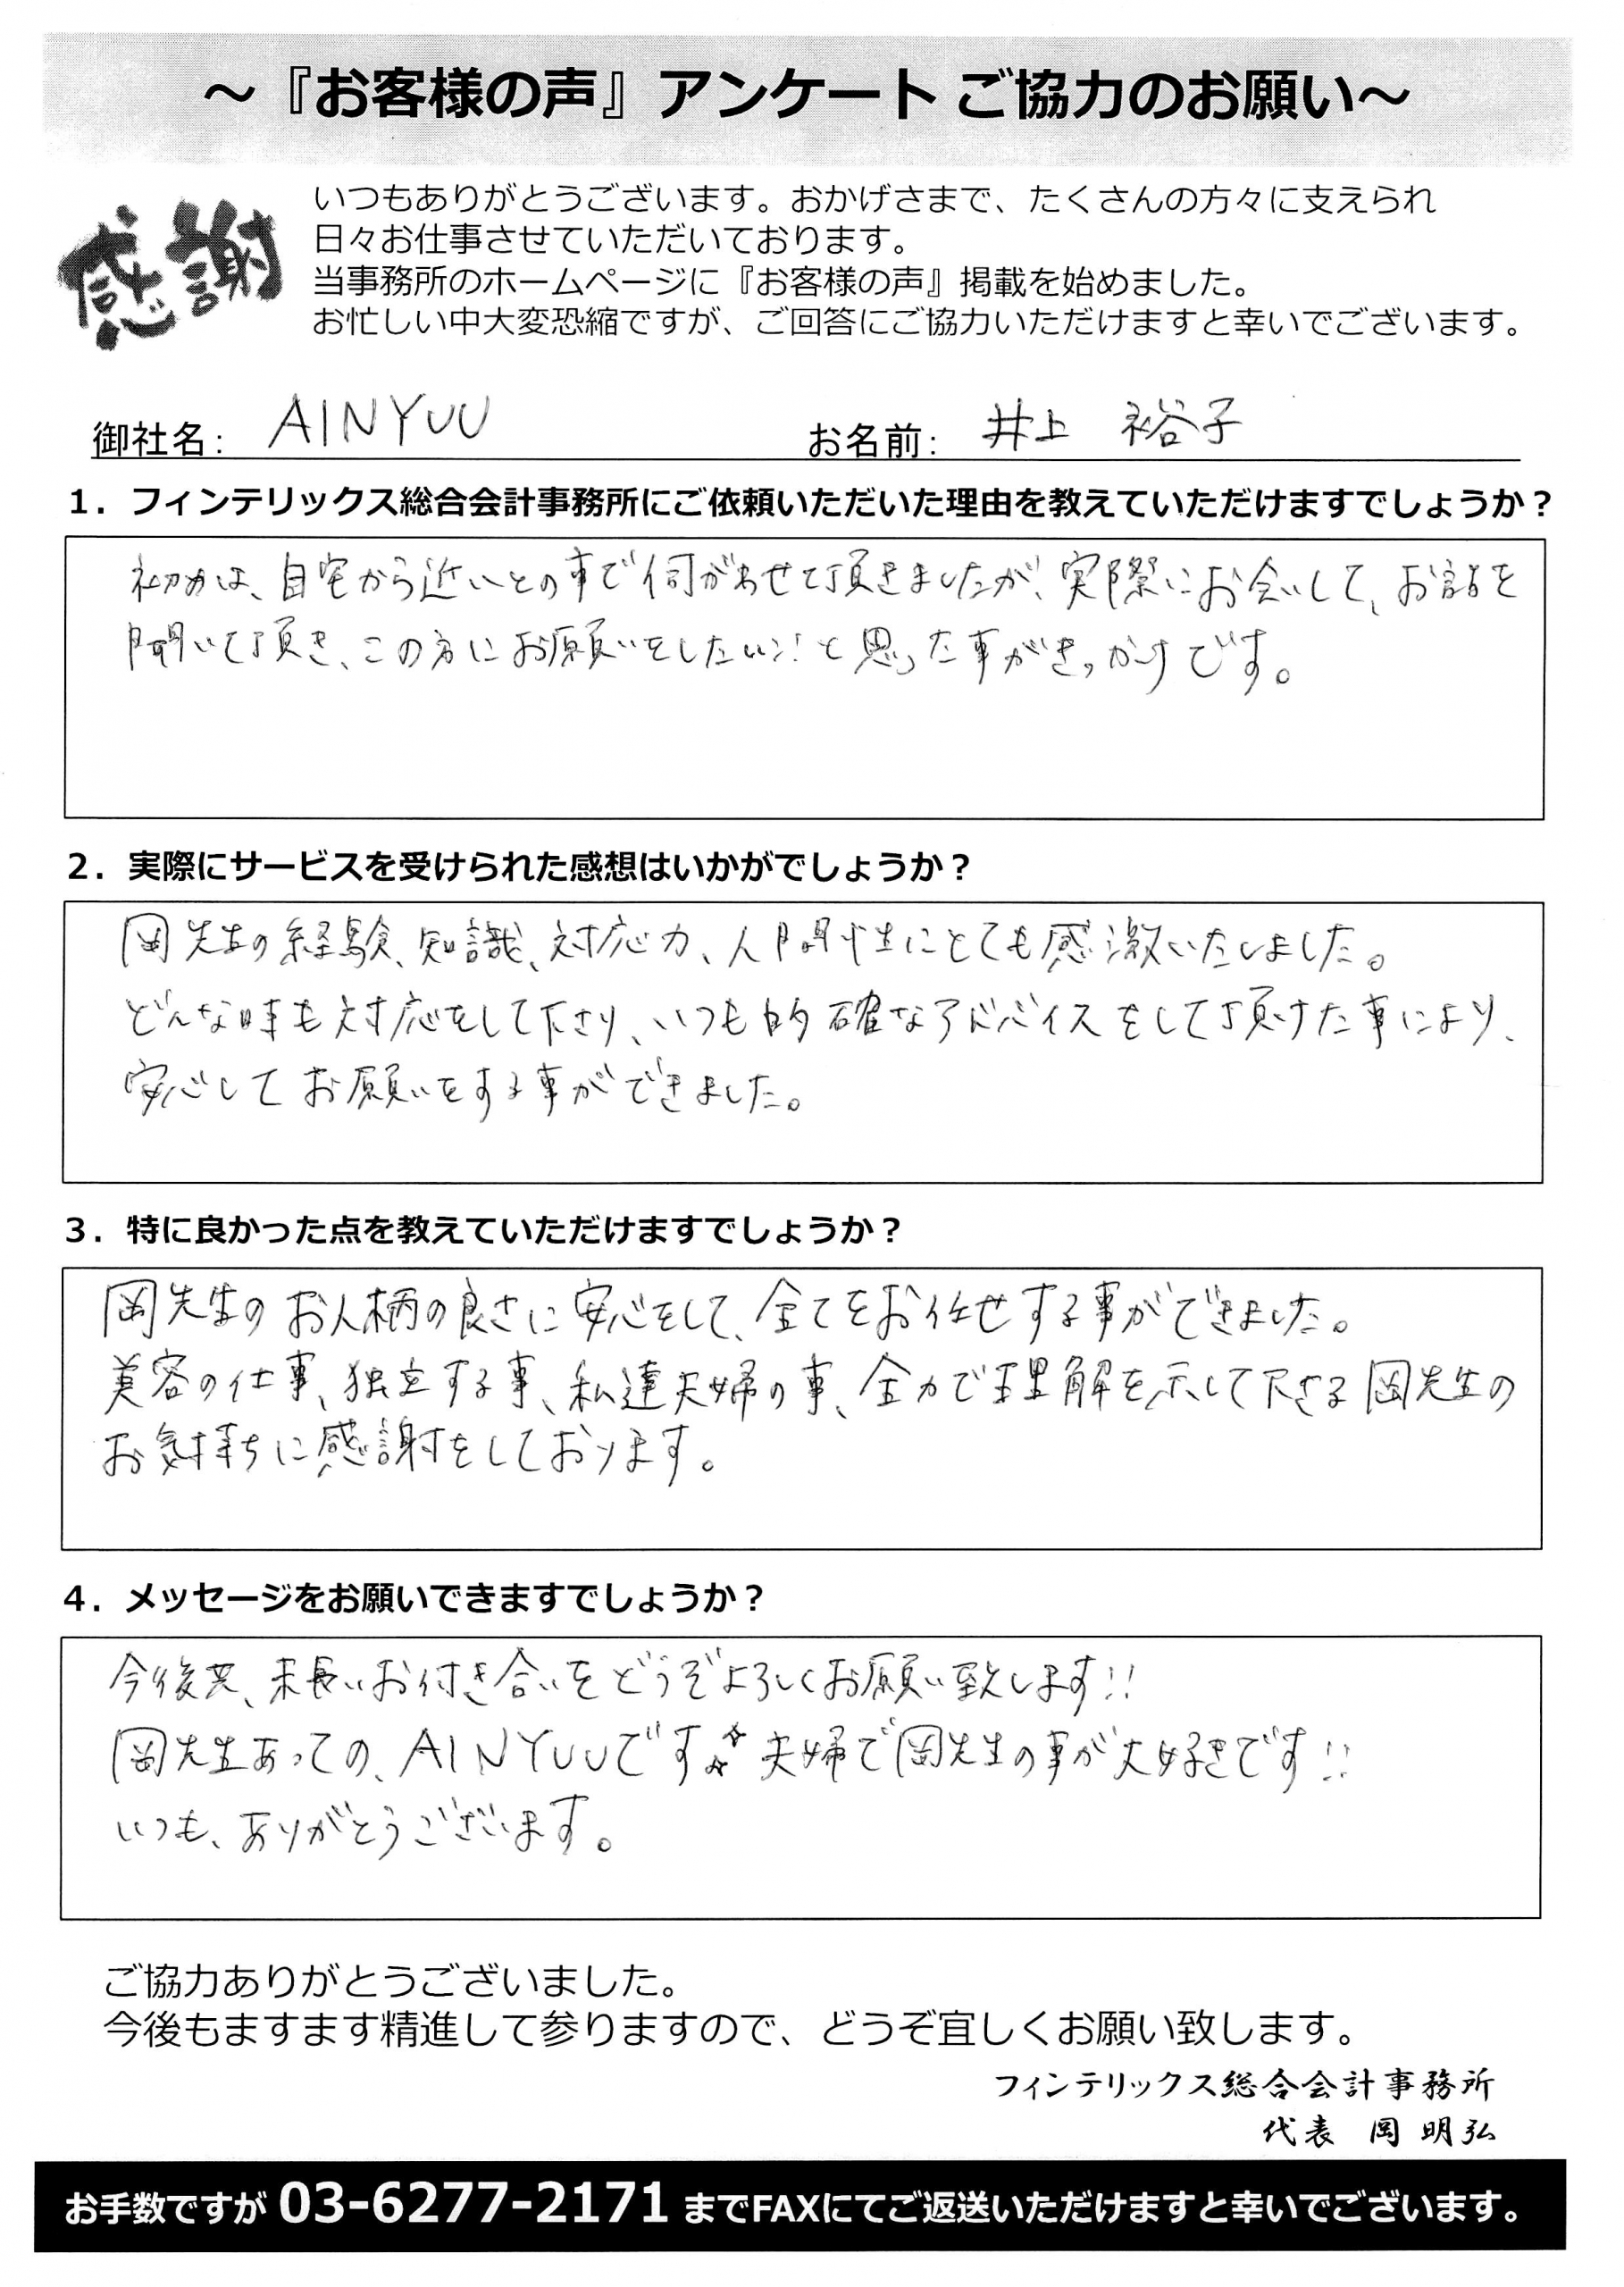 ～『お客様の声』アンケート ご協力のお願い～
感謝
いつもありがとうございます。おかげさまで、たくさんの方々に支えられ
日々お仕事させていただいております。
当事務所のホームページに『お客様の声』掲載を始めました。
お忙しい中大変恐縮ですが、ご回答にご協力いただけますと幸いでございます。
御社名: AINYUU お名前: 井上 裕子
１．フィンテリックス総合会計事務所にご依頼いただいた理由を教えていただけますでしょうか？
初めは、自宅から近いとの事で伺がわせて頂きましたが、実際にお会いして、お話を
聞いて頂き、この方にお願いをしたい!と思った事がきっかけです。
２．実際にサービスを受けられた感想はいかがでしょうか？
岡先生の経験、知識、対応力、人間性にとても感激いたしました。
どんな時も対応をして下さり、いつも的確なアドバイスをして頂けた事により、
安心してお願いをする事ができました。
３．特に良かった点を教えていただけますでしょうか？
岡先生のお人柄の良さに安心をして、全てをお任せする事ができました。
美容の仕事、独立する事、私達夫婦の事、全力で理解を示して下さる岡先生の
お気持ちに感謝をしております。
４．メッセージをお願いできますでしょうか？
今後共、末長いお付き合いをどうぞよろしくお願い致します!!
岡先生あっての、AINYUUです☆☆夫婦で岡先生の事が大好きです!!
いつも、ありがとうございます。
ご協力ありがとうございました。
今後もますます精進して参りますので、どうぞ宜しくお願い致します。
フィンテリックス総合会計事務所
代表 岡 明弘
お手数ですが 03-6277-2171 までFAXにてご返送いただけますと幸いでございます。